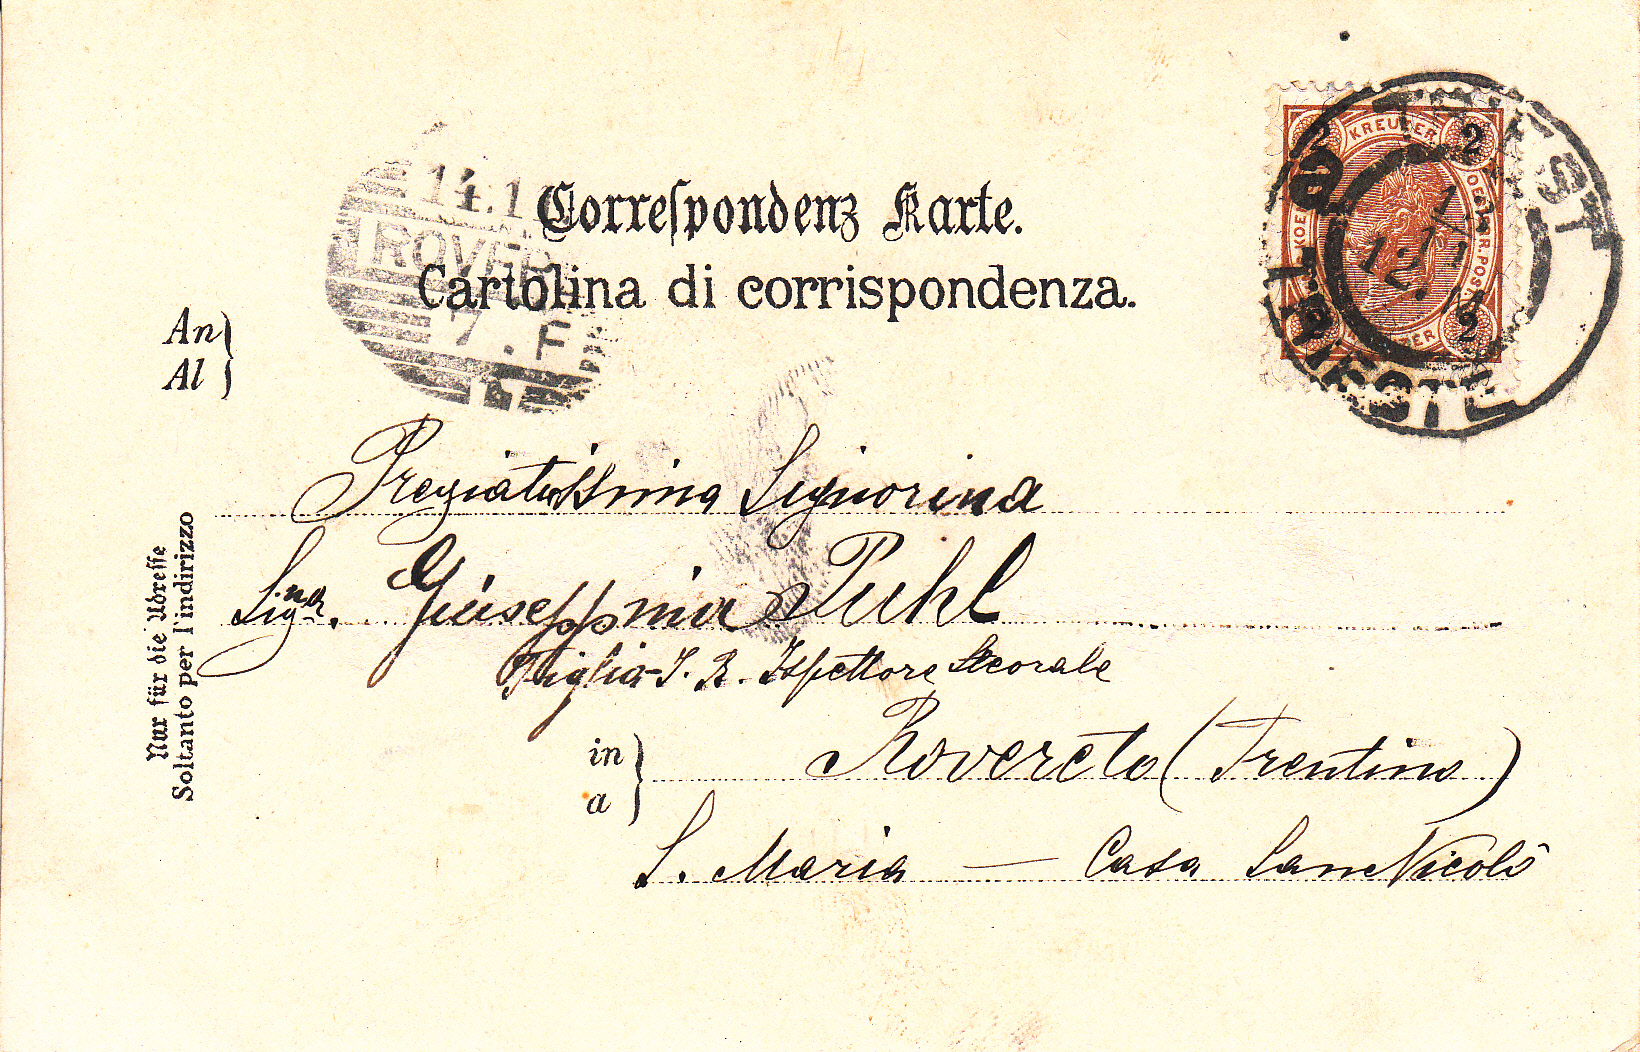 Correspondenz Karte.
Cartolina di corrispondenza.
An
Al
14.1
ROVER
7. F
KREUZER
2
2
TRIEST
TRIESTE
12
Pregiatissima Signorina
Sig.na Giuseppina Puhl
Figlia I. R. Ispettore
in
a
Rovereto (Trentino)
S. Maria — Casa San Nicolò
Nur für die Adresse
Soltanto per l'indirizzo